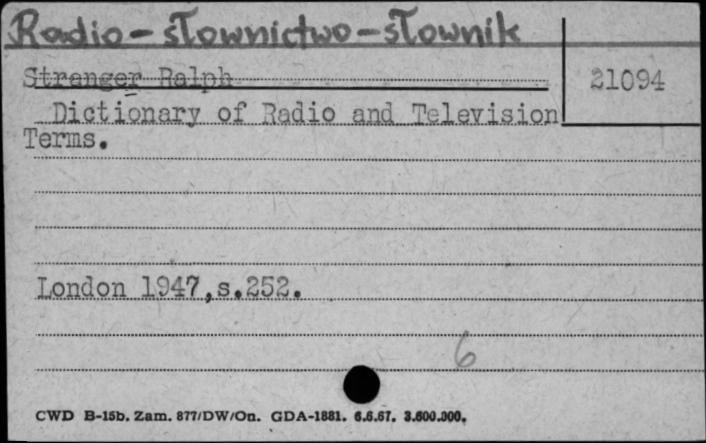 Radio - słownictwo - słownik
Stranger Ralph
21094
Dictionary of Radio and Television
Terms.
London 1947,s.252.
6
CWD B-15b. Zam. 877/DW/On. GDA-1881. 6.6.67. 3.600.000.